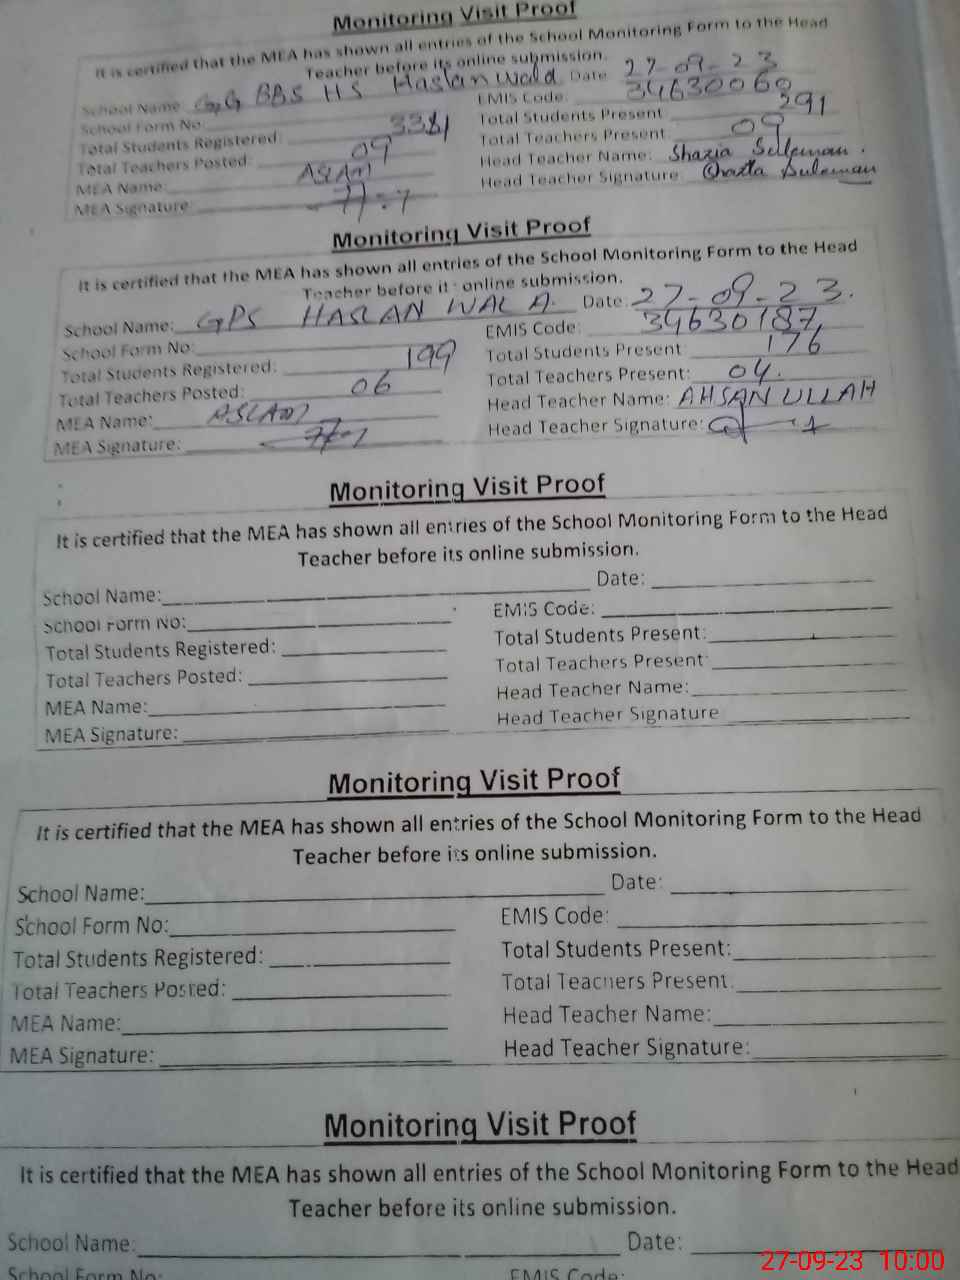 Monitoring Visit Proof
It is certified that the MEA has shown all entries of the School Monitoring Form to the Head
Teacher before its online submission.
School Name: BBS HS Haslan Wala Date 27-09-23
School Form No: EMIS Code: 34630060
Total Students Registered: Total Students Present 291
Total Teachers Posted: 09 Total Teachers Present 09
MEA Name: ASLAM Head Teacher Name: Shazia Suleman.
MEA Signature: Head Teacher Signature Suleman
Monitoring Visit Proof
It is certified that the MEA has shown all entries of the School Monitoring Form to the Head
Teacher before it online submission.
School Name: GPS HASLAN WALA. Date: 27-09-23.
School Form No: EMIS Code: 34630187
Total Students Registered: 199 Total Students Present 176
Total Teachers Posted: 06 Total Teachers Present: 04.
MEA Name: ASLAM Head Teacher Name: AHSAN ULLAH
MEA Signature: Head Teacher Signature:
Monitoring Visit Proof
It is certified that the MEA has shown all entries of the School Monitoring Form to the Head
Teacher before its online submission.
School Name: Date:
School Form No: EMIS Code:
Total Students Registered: Total Students Present:
Total Teachers Posted: Total Teachers Present
MEA Name: Head Teacher Name:
MEA Signature: Head Teacher Signature
Monitoring Visit Proof
It is certified that the MEA has shown all entries of the School Monitoring Form to the Head
Teacher before its online submission.
School Name: Date:
School Form No: EMIS Code:
Total Students Registered: Total Students Present:
Total Teachers Posted: Total Teachers Present
MEA Name: Head Teacher Name:
MEA Signature: Head Teacher Signature:
Monitoring Visit Proof
It is certified that the MEA has shown all entries of the School Monitoring Form to the Head
Teacher before its online submission.
School Name: Date:
School Form No: EMIS Code:
27-09-23 10:00